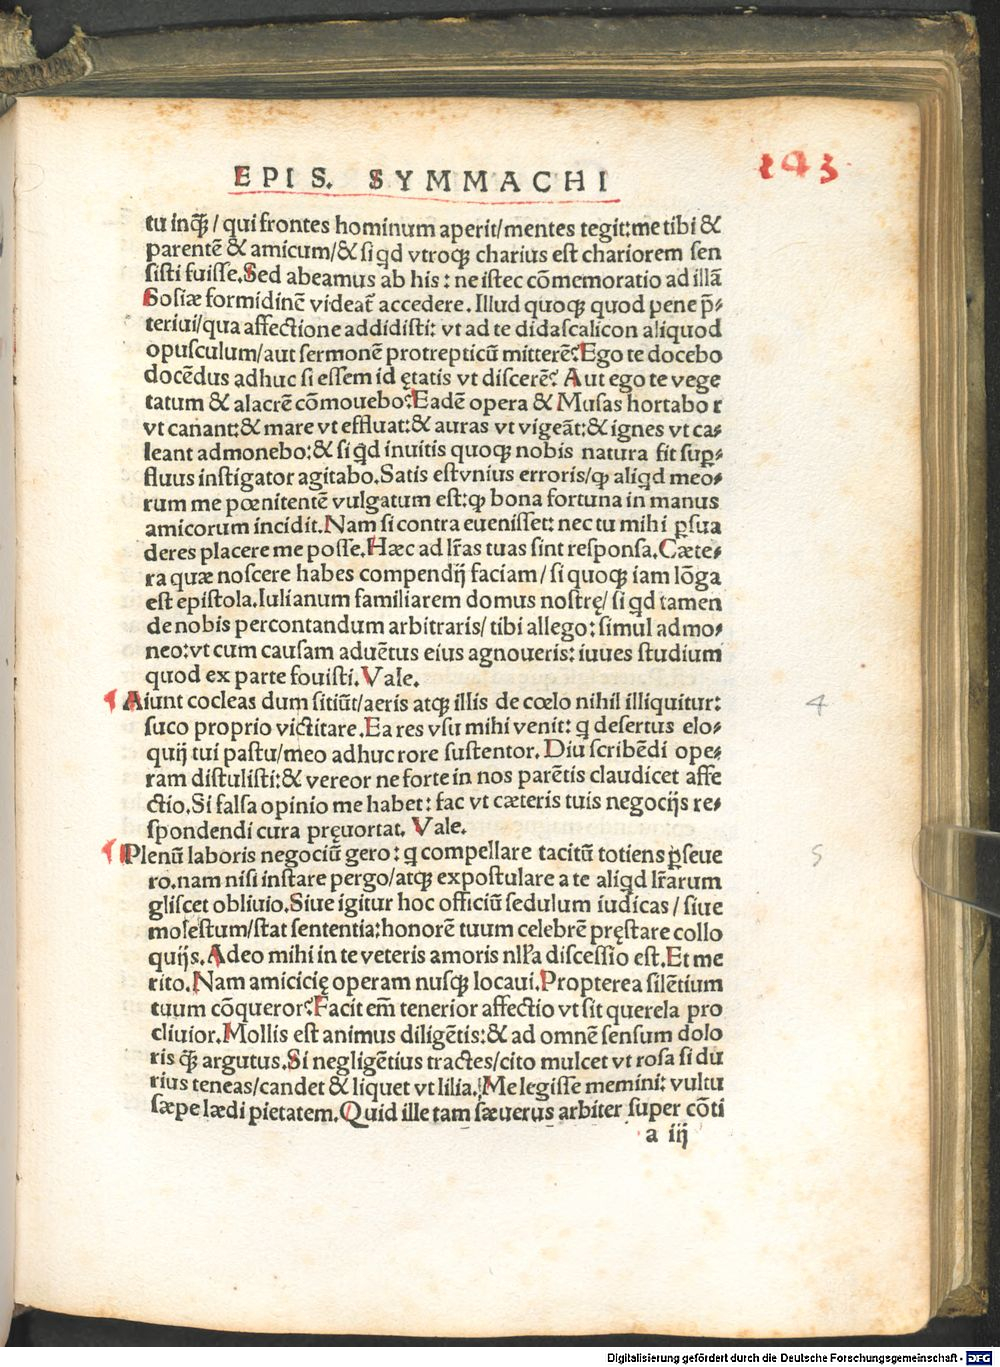 EPIS. SYMMACHI
143
tu inqꝫ̃/ qui frontes hominum aperit/mentes tegit:me tibi &
parentẽ & amicum/& si qd vtroqꝫ charius est chariorem sen
sisti fuisse.Sed abeamus ab his: ne istec cõmemoratio ad illã
Sosiæ formidinẽ videat̃ accedere. Illud quoqꝫ quod pene p̃-
teriui/qua affectione addidisti: vt ad te didascalicon aliquod
opusculum/aut sermonẽ protrepticũ mitterẽ? Ego te docebo
docẽdus adhuc si essem id ętatis vt discerẽ? Aut ego te vege
tatum & alacrẽ cõmouebo? Eadẽ opera & Musas hortabor
vt canant:& mare vt effluat:& auras vt vigeãt:& ignes vt ca-
leant admonebo:& si qd inuitis quoqꝫ nobis natura fit suꝑ-
fluus instigator agitabo.Satis est vnius erroris/ꝙ aliqd meo-
rum me pœnitentẽ vulgatum est:ꝙ bona fortuna in manus
amicorum incidit.Nam si contra euenisset: nec tu mihi ꝑsua
deres placere me posse.Hæc ad lr̃as tuas sint responsa.Cæte-
ra quæ noscere habes compendij faciam/ si quoqꝫ iam lõga
est epistola.Iulianum familiarem domus nostrę/ si qd tamen
de nobis percontandum arbitraris/ tibi allego: simul admo-
neo:vt cum causam aduẽtus eius agnoueris: iuues studium
quod ex parte fouisti. Vale.
Aiunt cocleas dum sitiũt/aeris atqꝫ illis de cœlo nihil illiquitur:
suco proprio victitare.Ea res vsu mihi venit: q desertus elo-
quij tui pastu/meo adhuc rore sustentor. Diu scribẽdi ope-
ram distulisti:& vereor ne forte in nos parẽtis claudicet affe
ctio.Si falsa opinio me habet: fac vt cæteris tuis negocijs re-
spondendi cura pręuortat. Vale.
Plenũ laboris negociũ gero: q compellare tacitũ totiens ꝑseue
ro.nam nisi instare pergo/atqꝫ expostulare a te aliqd lr̃arum
gliscet obliuio.Siue igitur hoc officiũ sedulum iudicas/ siue
molestum/stat sententia:honorẽ tuum celebrẽ pręstare collo
quijs.Adeo mihi in te veteris amoris nll'a discessio est.Et me
rito.Nam amicicię operam nusqꝫ locaui.Propterea silẽtium
tuum cõqueror? Facit em̃ tenerior affectio vt sit querela pro
cliuior.Mollis est animus diligẽtis:& ad omnẽ sensum dolo
ris qꝫ̃ argutus.Si negligẽtius tractes/cito mulcet vt rosa si du
rius teneas/candet & liquet vt lilia. Me legisse memini: vultu
sæpe lædi pietatem.Quid ille tam sæuerus arbiter super cõti
a iij
4
5
Digitalisierung gefördert durch die Deutsche Forschungsgemeinschaft - DFG